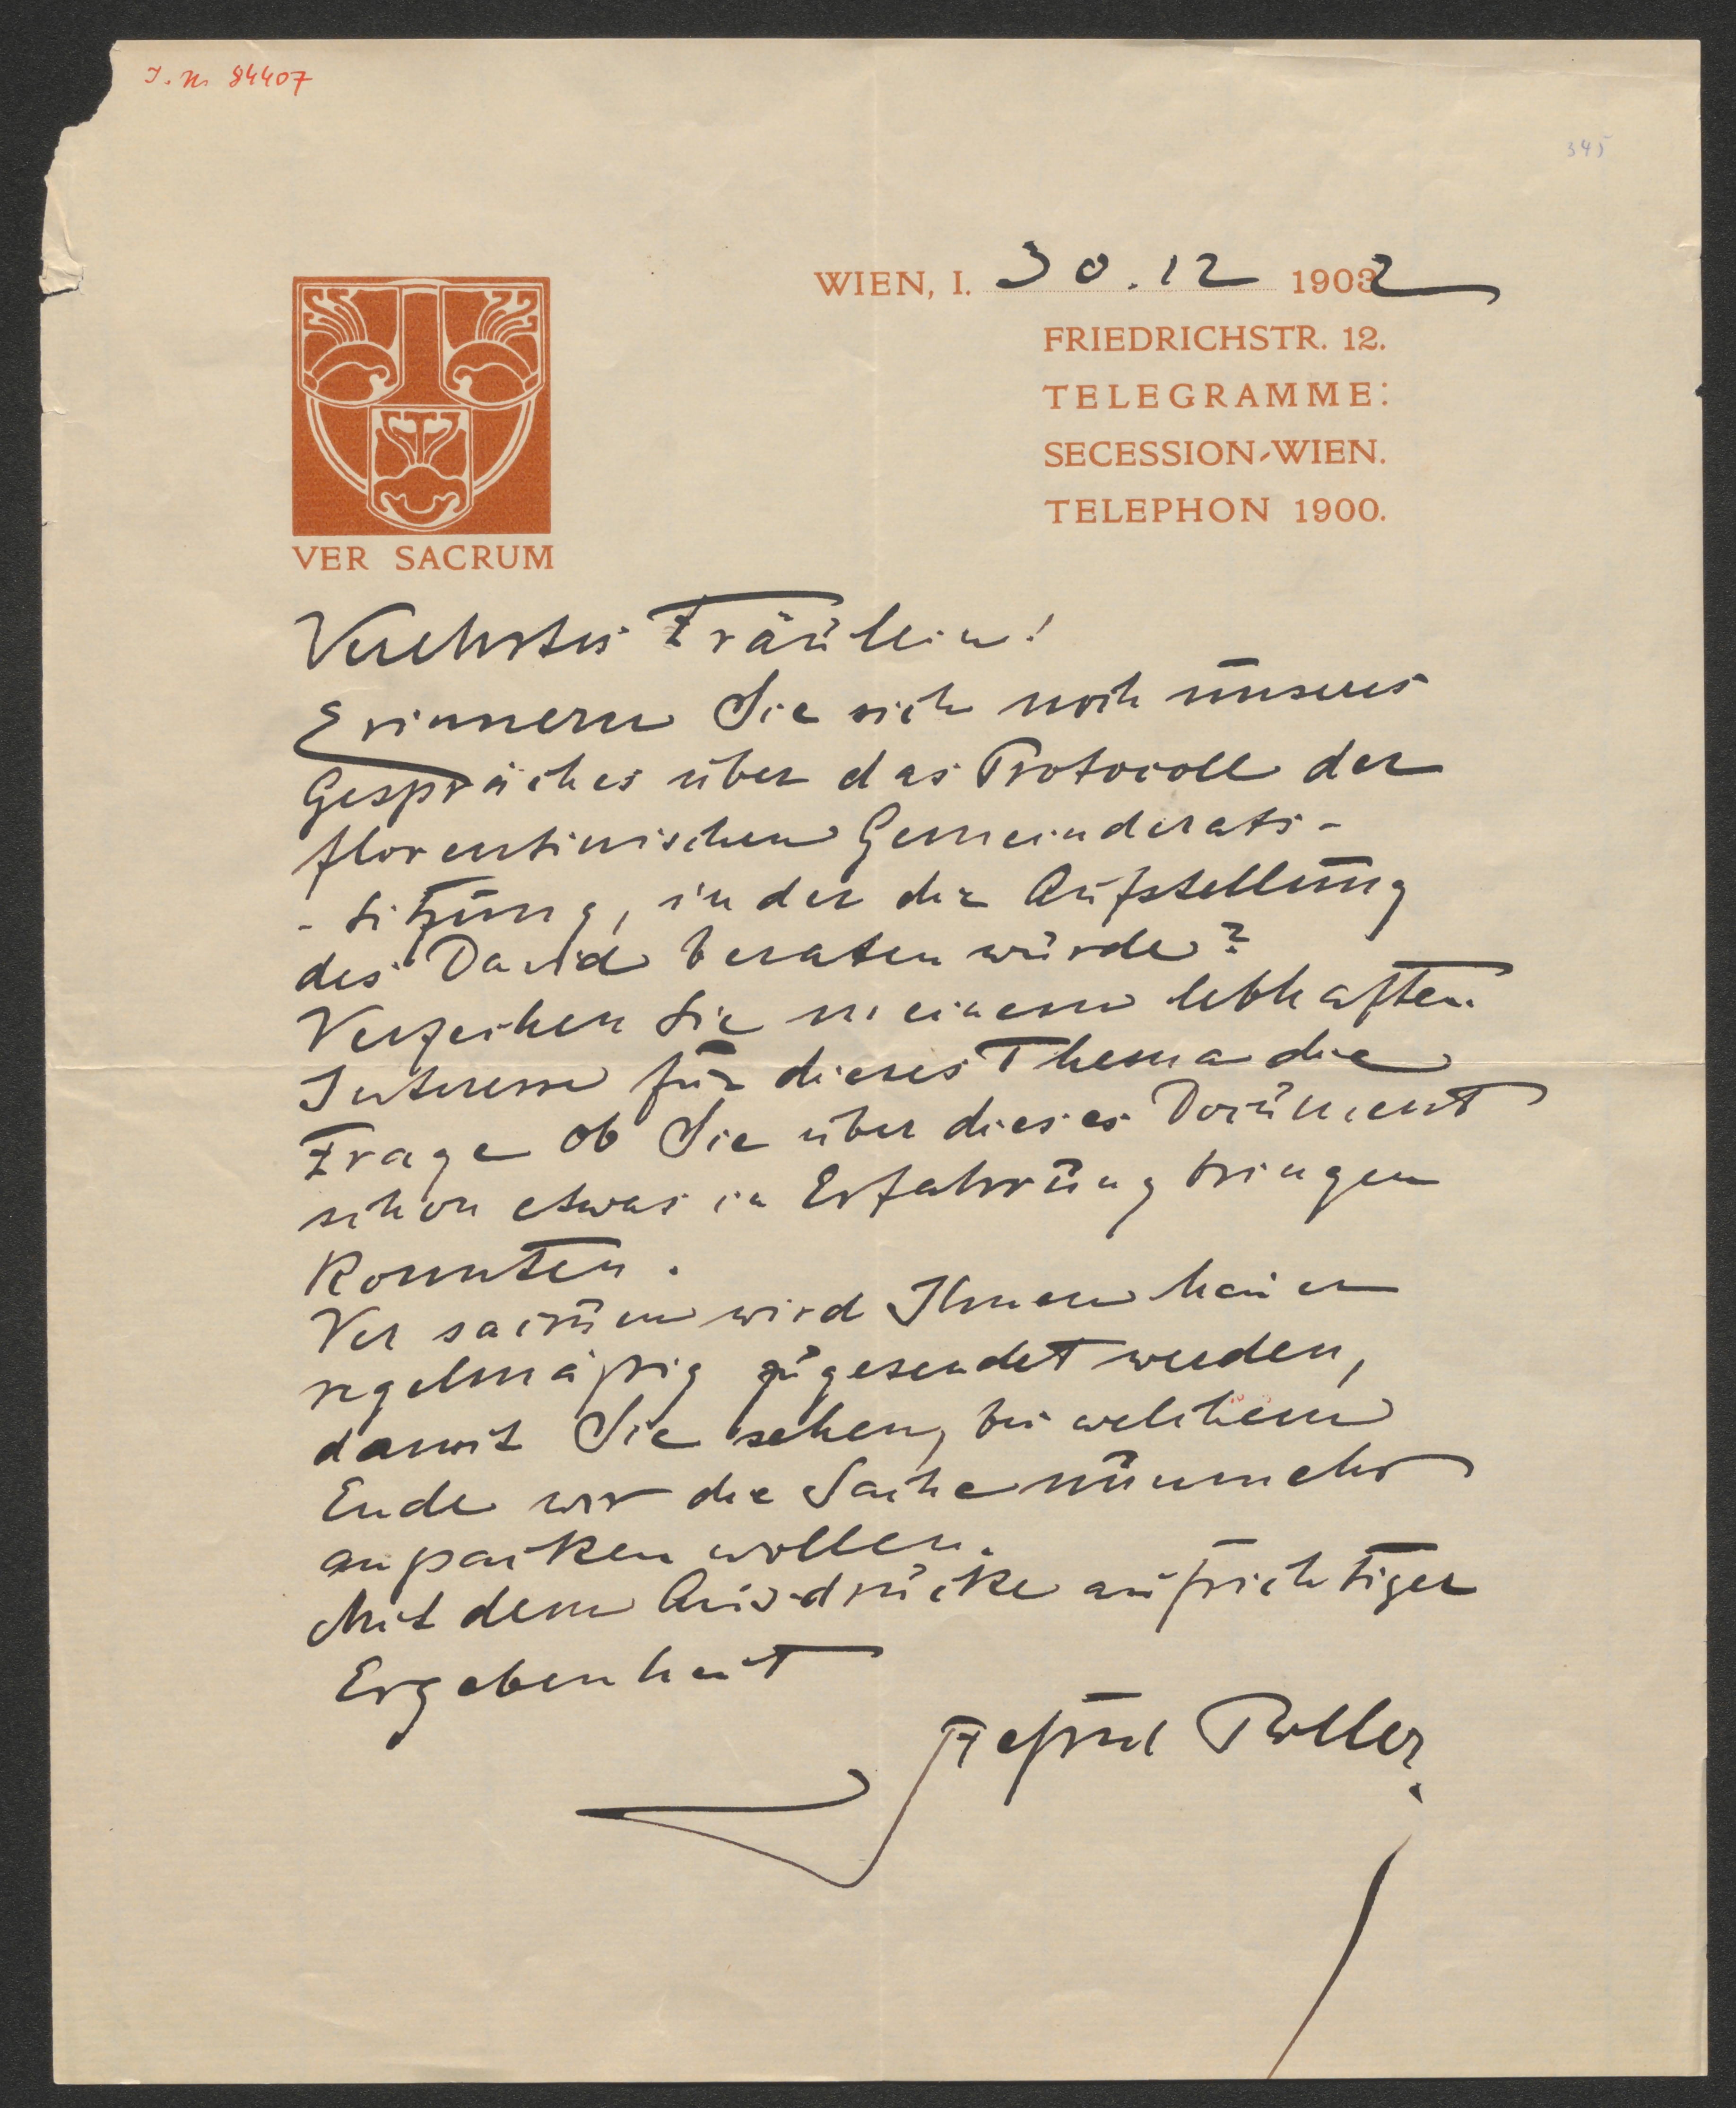 J. N. 84407
345
WIEN, I. 30.12 1902
FRIEDRICHSTR. 12.
TELEGRAMME:
SECESSION-WIEN.
TELEPHON 1900.
VER SACRUM
Verehrtes Fräulein!
Erinnern Sie sich noch unseres
Gespräches über das Protocoll der
florentinischen Gemeinderats-
-sitzung, in der die Aufstellung
des David beraten wurde?
Verzeihen Sie meinem lebhaften
Interesse für dieses Thema die
Frage ob Sie über dieses Document
schon etwas in Erfahrung bringen
konnten.
Ver sacrum wird Ihnen heuer
regelmäßig zugesendet werden,
damit Sie sehen, bei welchem
Ende wir die Sache nunmehr
anpacken wollen.
Mit dem Ausdrucke aufrichtiger
Ergebenheit
Alfred Roller